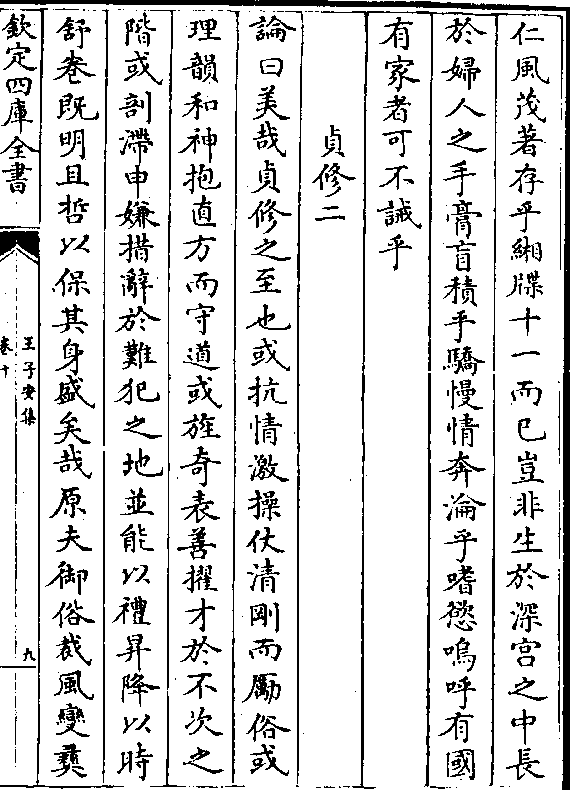 仁風茂著存乎緗牒十一而已豈非生於深宫之中長
於婦人之手膏肓積乎驕慢情奔淪乎嗜慾嗚呼有國
有家者可不誡乎
貞修二
論曰美哉貞修之至也或抗情激操仗清剛而勵俗或
理韻和神抱直方而守道或旌奇表善擢才於不次之
階或剖滯申嫌措辭於難犯之地並能以禮昇降以時
舒巻既明且哲以保其身盛矣哉原夫御俗裁風變彛
欽定四庫全書
王子安集
卷十
九